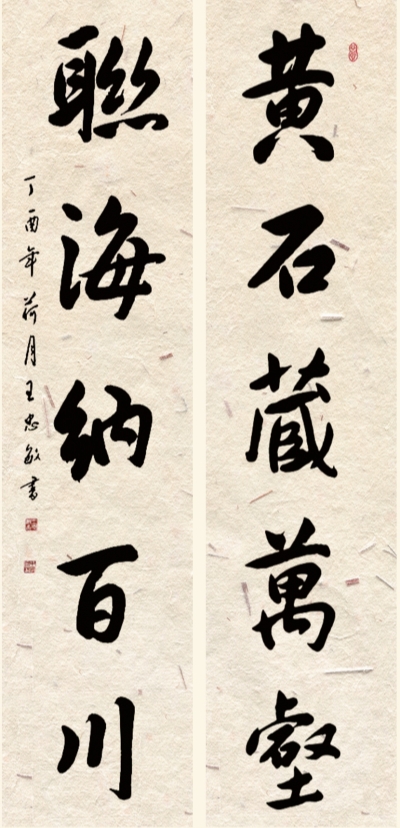 黄石藏萬壑
聯海納百川
丁酉年荷月王忠敏書